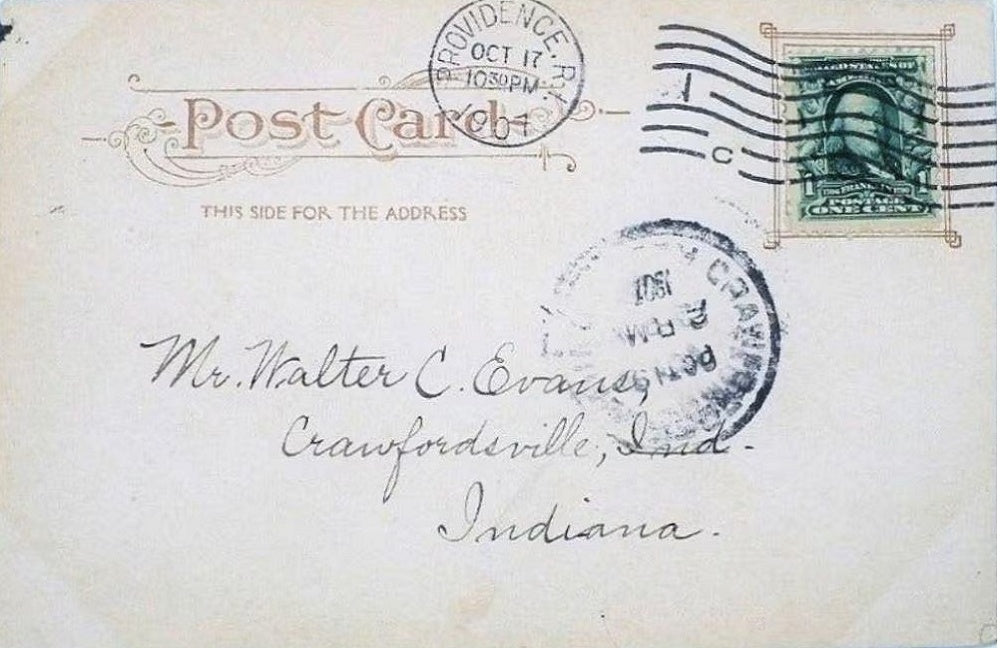 PROVIDENCE, R.I.
OCT 17
10 30 PM
1907
Post Card
THIS SIDE FOR THE ADDRESS
1 C
FRANKLIN
POSTAGE
ONE CENT
1907
Mr. Walter C. Evans,
Crawfordsville, Ind.
Indiana.